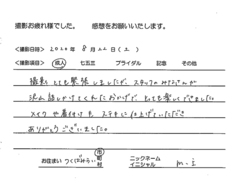 撮影お疲れ様でした。　感想をお願いいたします。
<撮影日時> 2020年 8月22日(土)
<撮影内容> 成人 七五三 ブライダル 記念 その他
撮影 とても緊張しましたが、スタッフのみなさんが
沢山話しかけてくれたおかげで、とっても楽しくできました。
メイクや着付けも ステキに仕上げていただき
ありがとうございました。
お住まい つくばみらい 市 町 村 ニックネーム イニシャル m.i